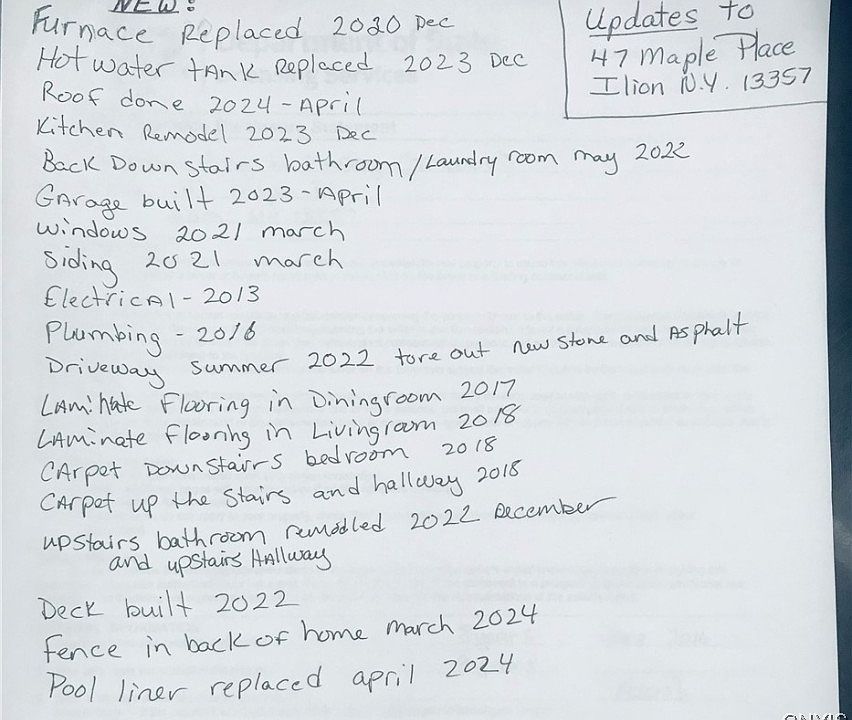 NEW:
Furnace Replaced 2020 Dec
Hot water tank Replaced 2023 Dec
Roof done 2024 - April
Kitchen Remodel 2023 Dec
Back Down Stairs bathroom / Laundry room may 2022
Garage built 2023 - April
Windows 2021 march
Siding 2021 march
Electrical - 2013
Plumbing - 2016
Driveway summer 2022 tore out new stone and Asphalt
Laminate Flooring in Diningroom 2017
Laminate flooring in Livingroom 2018
Carpet Downstairrs bedroom 2018
Carpet up the stairs and hallway 2018
upstairs bathroom remodled 2022 December
and upstairs Hallway
Deck built 2022
Fence in back of home march 2024
Pool liner replaced april 2024
Updates to
47 Maple Place
Ilion N.Y. 13357